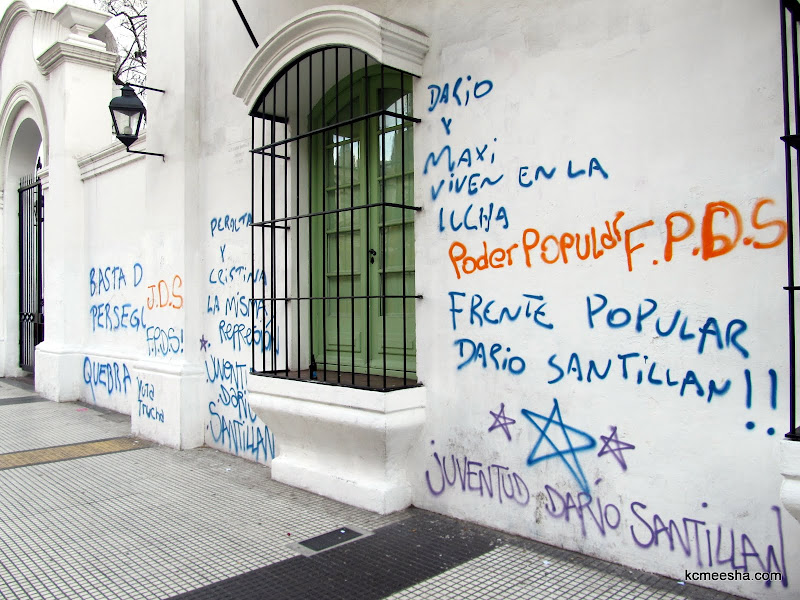 BASTA D
PERSEGU
QUEBRA
J.D.S
F.P.D.S!
YUTA
TRUCHA
PERALTA
Y
CRISTINA
LA MISMA
REPRESIÓN
JUVENT
DARIO
SANTILLAN
DARIO
Y
MAXI
VIVEN EN LA
LUCHA
Poder Popular F.P.D.S
FRENTE POPULAR
DARIO SANTILLAN!!
JUVENTUD DARÍO SANTILLAN
kcmeesha.com